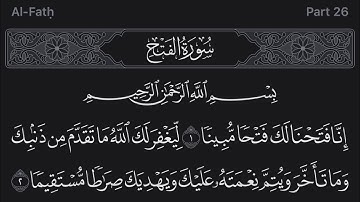 Al-Fatḥ
Part 26
سُورَةُ الفَتْحِ
بِسْمِ اللَّهِ الرَّحْمَٰنِ الرَّحِيمِ
إِنَّا فَتَحْنَا لَكَ فَتْحًا مُّبِينًا ١ لِّيَغْفِرَ لَكَ اللَّهُ مَا تَقَدَّمَ مِن ذَنۢبِكَ
وَمَا تَأَخَّرَ وَيُتِمَّ نِعْمَتَهُۥ عَلَيْكَ وَيَهْدِيَكَ صِرَٰطًا مُّسْتَقِيمًا ٢